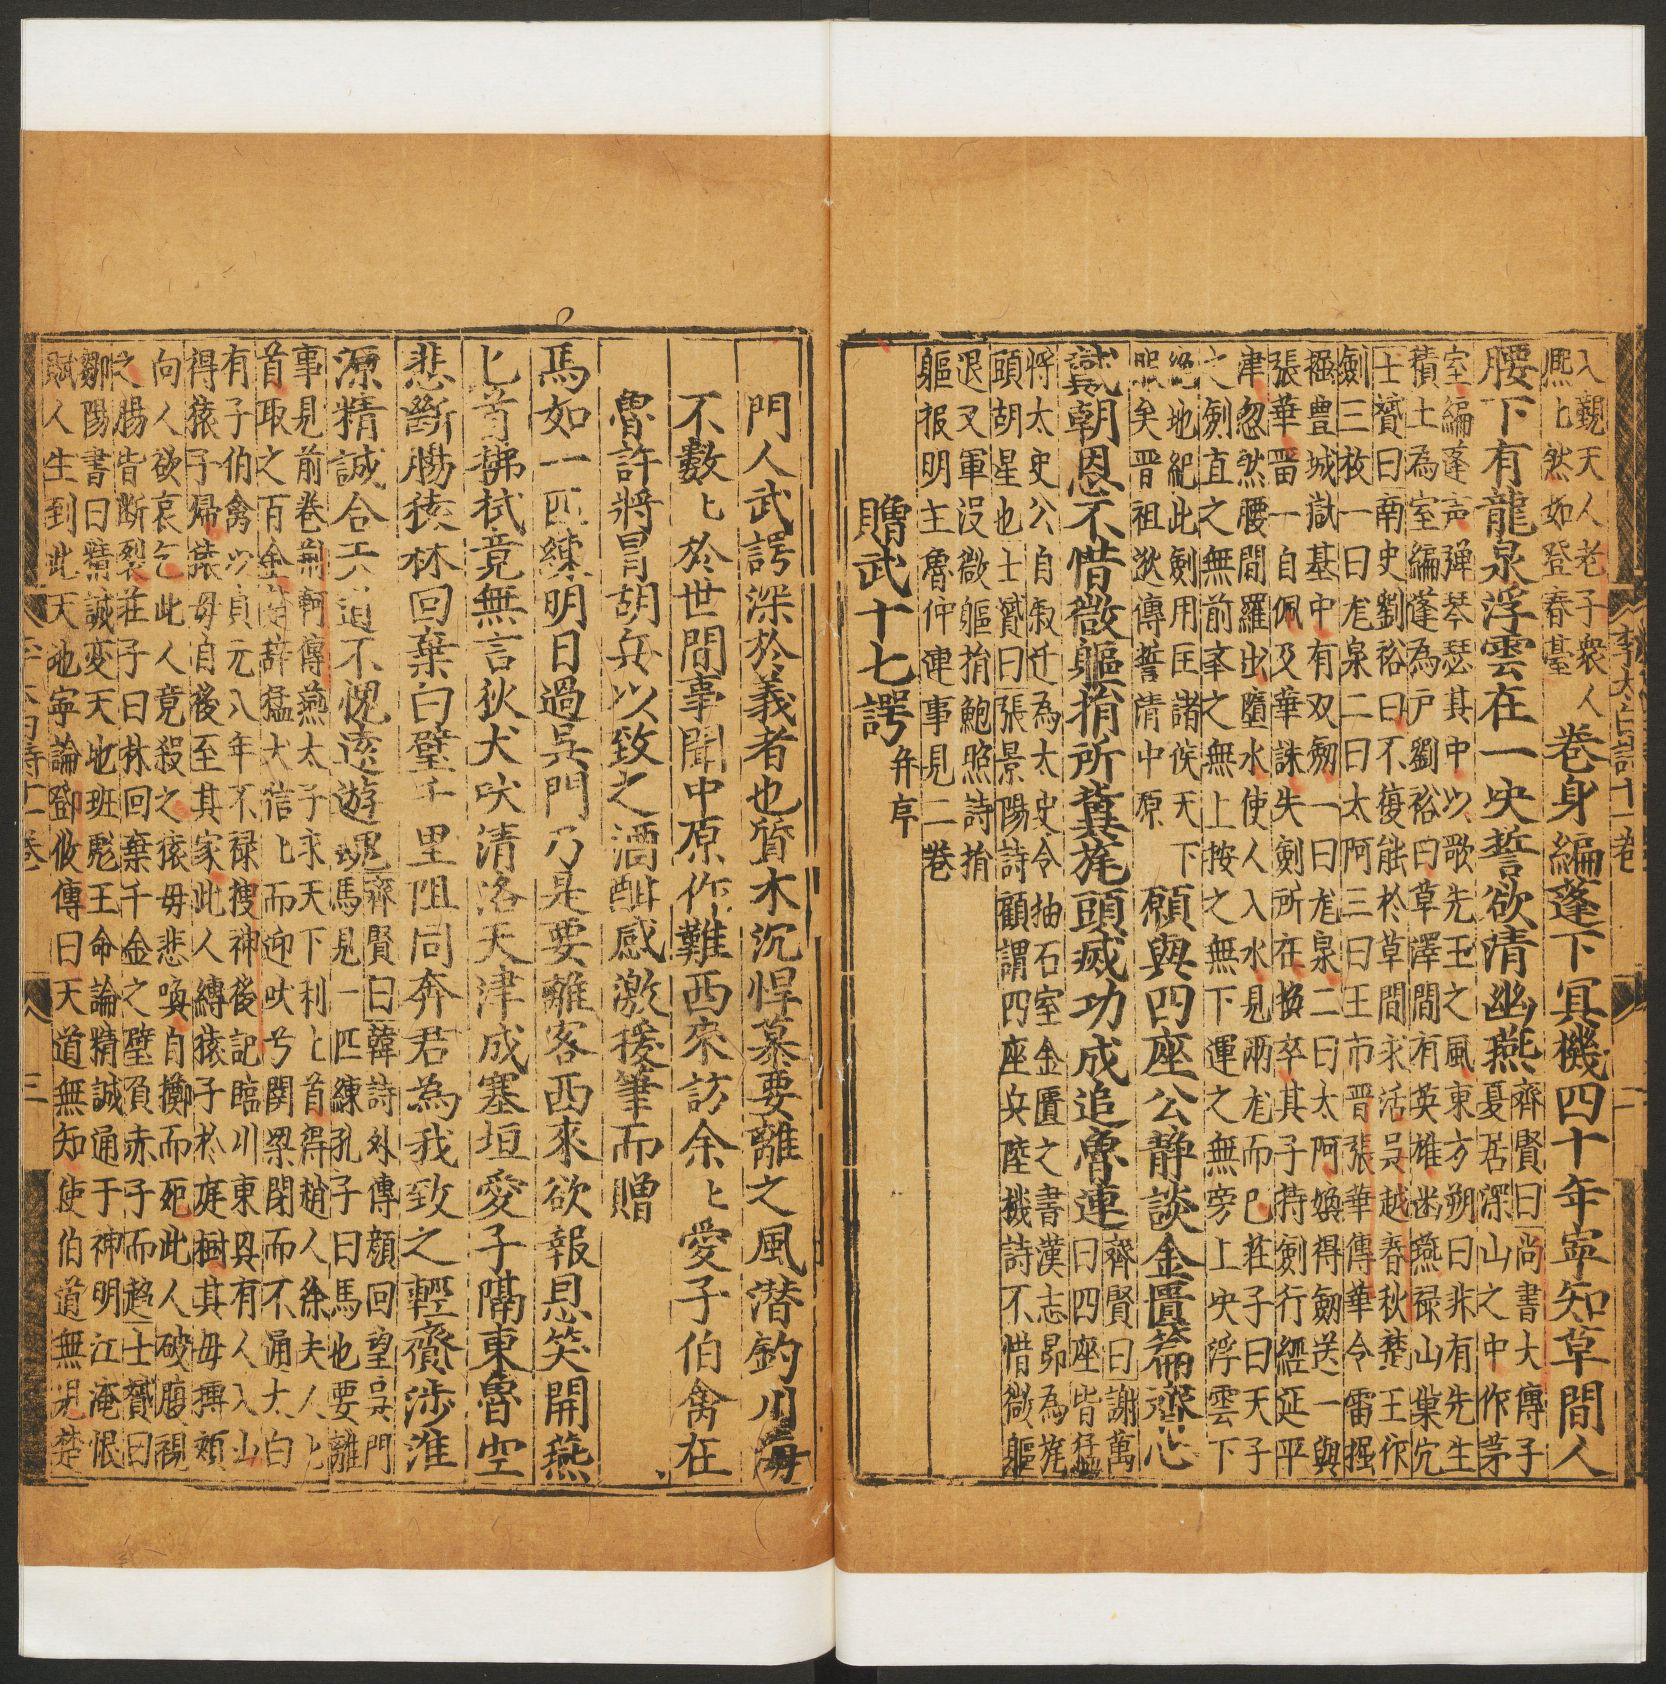 入覲天人老子衆人
熙匕然如登春臺
卷身編蓬下冥機四十年寜知草間人
腰下有龍泉浮雲在一决誓欲清幽燕
齊賢曰尚書大傳子
夏居深山之中作茅
室編蓬声彈琴瑟其中以歌先王之風東方朔曰非有先生
積土為室編蓬為戶劉裕曰草澤間有英雄幽燕禄山巢穴
士贇曰南史劉裕曰不復能於草間求活吳越春秋楚王作
劔三枚一曰龙泉二曰太阿三曰王市晋張華傳華令雷掘
掘豊城獄基中有双劔一曰龙泉二曰太阿煥得劔送一與
張華畱一自佩及華誅失劍所在煥卒其子持劍行經延平
津忽然腰間躍出墮水使人入水見两龙而已莊子曰天子
之劍直之無前牽之無上按之無下運之無旁上决浮雲下
絶地紀此劍用匡諸侯天下
服矣晋祖狄傳誓清中原
願與四座公静談金匱篇齊心
戴朝恩不惜微軀捐所冀旄頭滅功成追魯連
齊賢曰謝萬
曰四座皆猛
将太史公自叙迁為太史令抽石室金匱之書漢志昴為旄
頭胡星也士贇曰張景陽詩顧謂四座兵陸機詩不惜微軀
退又軍没微軀捐鮑照詩捐
軀报明主魯仲連事見二巻
贈武十七諤并序
門人武諤深於義者也質木沉悍慕要離之風潜釣川海
不數匕於世間事聞中原作難西來訪余匕愛子伯禽在
魯許將冐胡兵以致之酒酣感激援筆而贈
馬如一匹練明日過吳門乃是要離客西來欲報恩笑開燕
匕首拂拭竟無言狄犬吠清洛天津成塞垣愛子隔東魯空
悲斷腸猿林回棄白璧千里阻同奔君為我致之輕齎涉淮
源精誠合天道不愧遠遊魂
齊賢曰韓詩外傳顏回望吳門
馬見一匹練孔子曰馬也要離
事見前卷荆軻傳燕太子求天下利匕首得趙人徐夫人匕
首取之百金楚辞猛犬信匕而迎吠兮関梁閉而不通太白
有子伯禽以貞元八年不禄搜神後記臨川東興有人入山
得猿子帰猿母自後至其家此人縛猿子於庭樹其母摶頰
向人欲哀乞此人竟殺之猿母悲喚自擲而死此人破腹視
之腸皆断裂莊子曰林回棄千金之璧負赤子而趋士贇曰
鄒陽書曰精誠変天地班彪王命論精誠通于神明江淹恨
賦人生到此天地寧論鄧攸傳曰天道無知使伯道無児楚